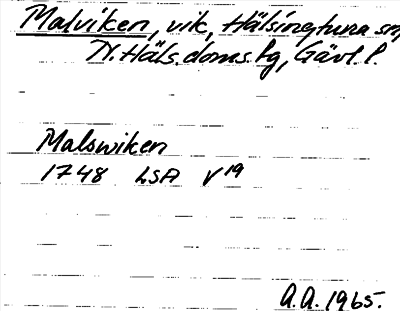 Malviken, vik, Hälsingtuna sn,
N. Häls. doms. lg, Gävl. l.
Malswiken
1748 LSA V19
A.A. 1965.